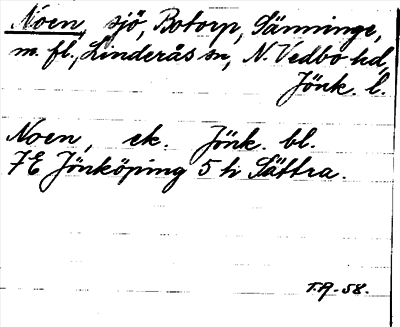 Noen, sjö, Botorp, Sänninge,
m. fl., Linderås sn, N. Vedbo hd,
Jönk. l.
Noen, ek. Jönk. bl.
7E Jönköping 5 h Sättra.
T.A-58.